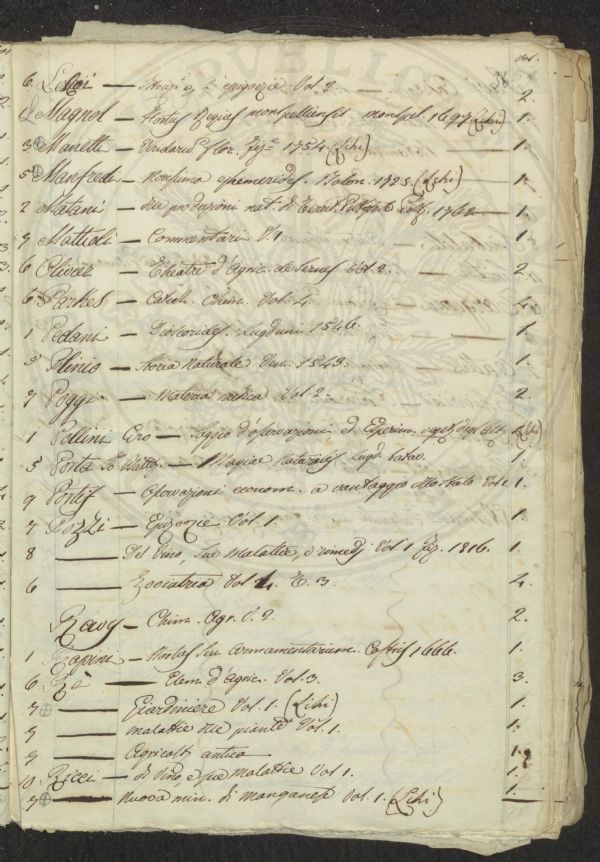 vol.
6 Leroi — epizoozie Vol. 2. 2.
1 Magnol — Hortus Regius monspeliensis. monspel. 1697 (Lihi) 1.
3 Manetti — Viridario flor. 1751. (Lihi) 1.
5 Manfredi — Novissima ephemerides. Bolon. 1725. (Lihi) 1.
2 Matani — produzioni nat. di 1762 — 1.
7 Mattioli — Commentari V. 1. 1.
6 Olivier — Theatre d'Agric. de Serres Vol. 2. — 2.
6 Parkes — Catech. Chim. Vol. 4. — 4.
1 Pedani — Dioscorides. Lugduni 1546. — 1.
5 Plinio — Storia Naturale Ven. 1543. 1.
7 Poggi — Materia medica Vol. 2. — 2.
1 Pollini Ciro — Saggio d'osservazioni ed Esperim. (Lihi)
5 Porta — Magiae Naturalis Lugd. batav. 1.
9 — Osservazioni econom. a vantaggio dello Stato Vol. 1. 1.
7 Pozzi — Epizoozie Vol. 1. 1.
8 — Del Vino, sue malattie, e rimedj Vol 1. 1816. 1.
6 — Zoojatria Vol 4. 4.
Ravy — Chim. Agr. V. 2. 2.
1 Rapini — Hortus seu armamentarium. 1666. 1.
6 Re — Elem. d'Agric. Vol. 3. 3.
7 — Giardiniere Vol. 1. (Lihi) 1.
9 — malattie delle piante Vol. 1. 1.
9 — Agricolt. antica 1.
10 Ricci — di vino, e sue malattie Vol 1. 1.
9 — Nuova min. di manganese Vol. 1. (Lihi) 1.